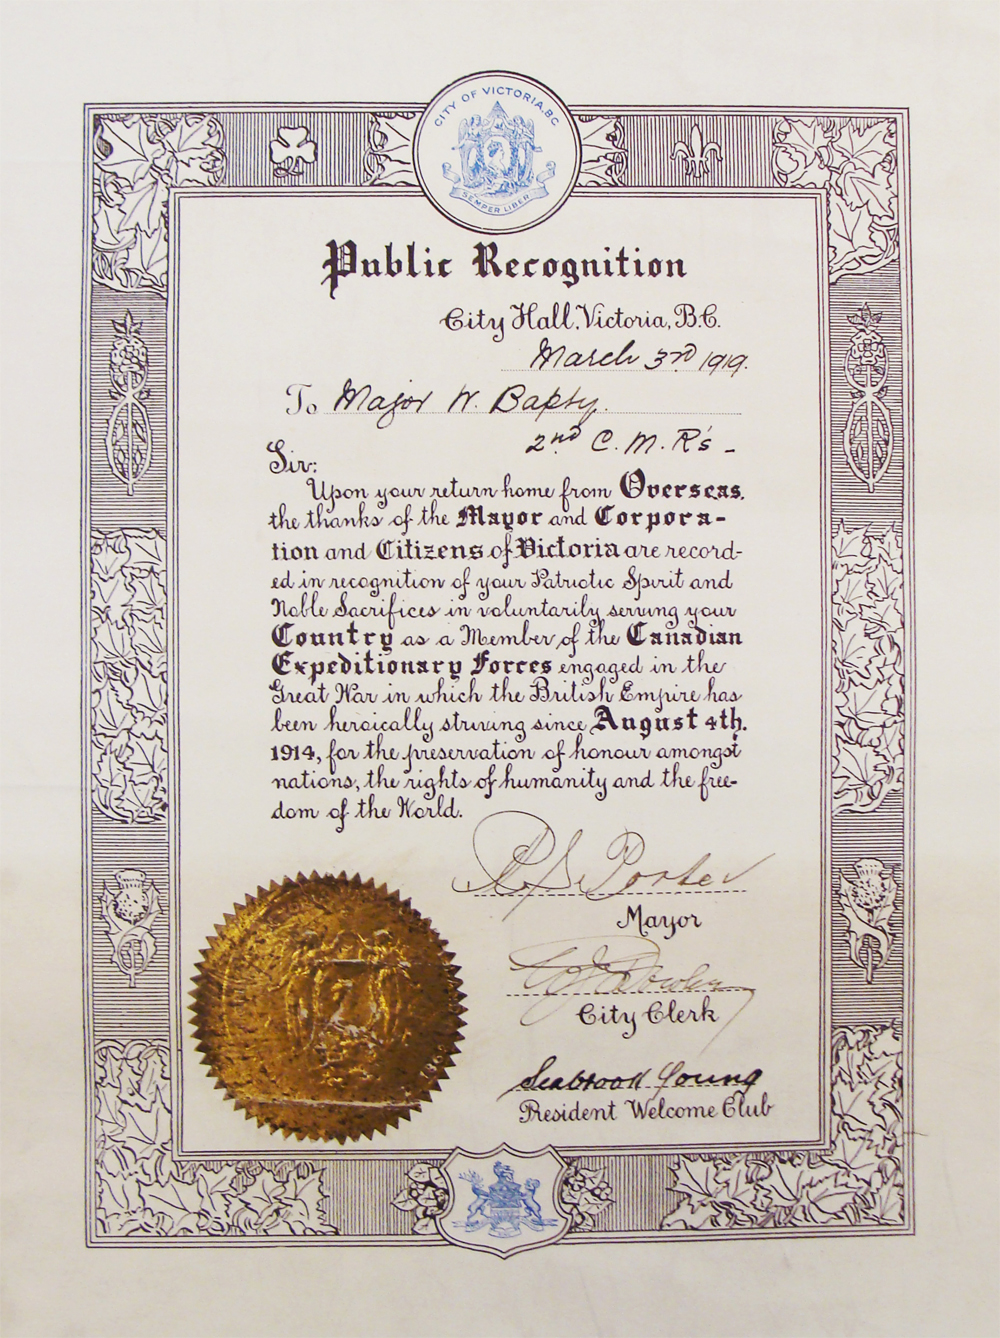 CITY OF VICTORIA. B.C.
SEMPER LIBER
Public Recognition
City Hall, Victoria, B.C.
March 3rd 1919.
To Major W. Bapty.
2nd C. M. R's -
Sir:
Upon your return home from Overseas,
the thanks of the Mayor and Corpora-
tion and Citizens of Victoria are record-
ed in recognition of your Patriotic Spirit and
Noble Sacrifices in voluntarily serving your
Country as a Member of the Canadian
Expeditionary Forces engaged in the
Great War in which the British Empire has
been heroically striving since August 4th,
1914, for the preservation of honour amongst
nations, the rights of humanity and the free-
dom of the World.
R. J. Porter
Mayor
Dowler
City Clerk
Seabrook Young
President Welcome Club